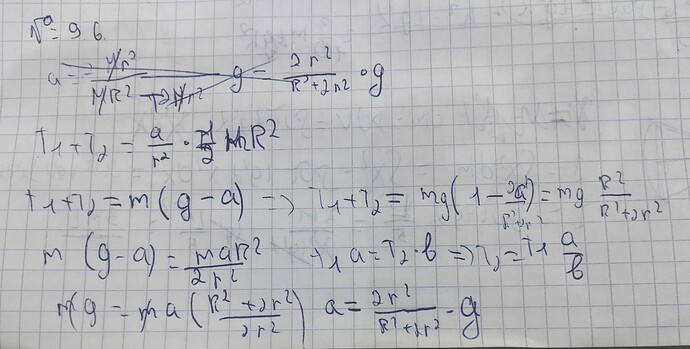 № 96.
a = Mr² / MR² + 2Mr² g = 2r² / R²+2r² · g
T₁+T₂ = a/r² · 1/2 mR²
T₁+T₂ = m(g-a) => T₁+T₂ = mg(1 - 2r²/R²+2r²) = mg R²/R²+2r²
m(g-a) = maR²/2r² T₁a = T₂·b => T₂ = T₁ a/b
mg = ma(R²+2r²/2r²) a = 2r²/R²+2r² · g